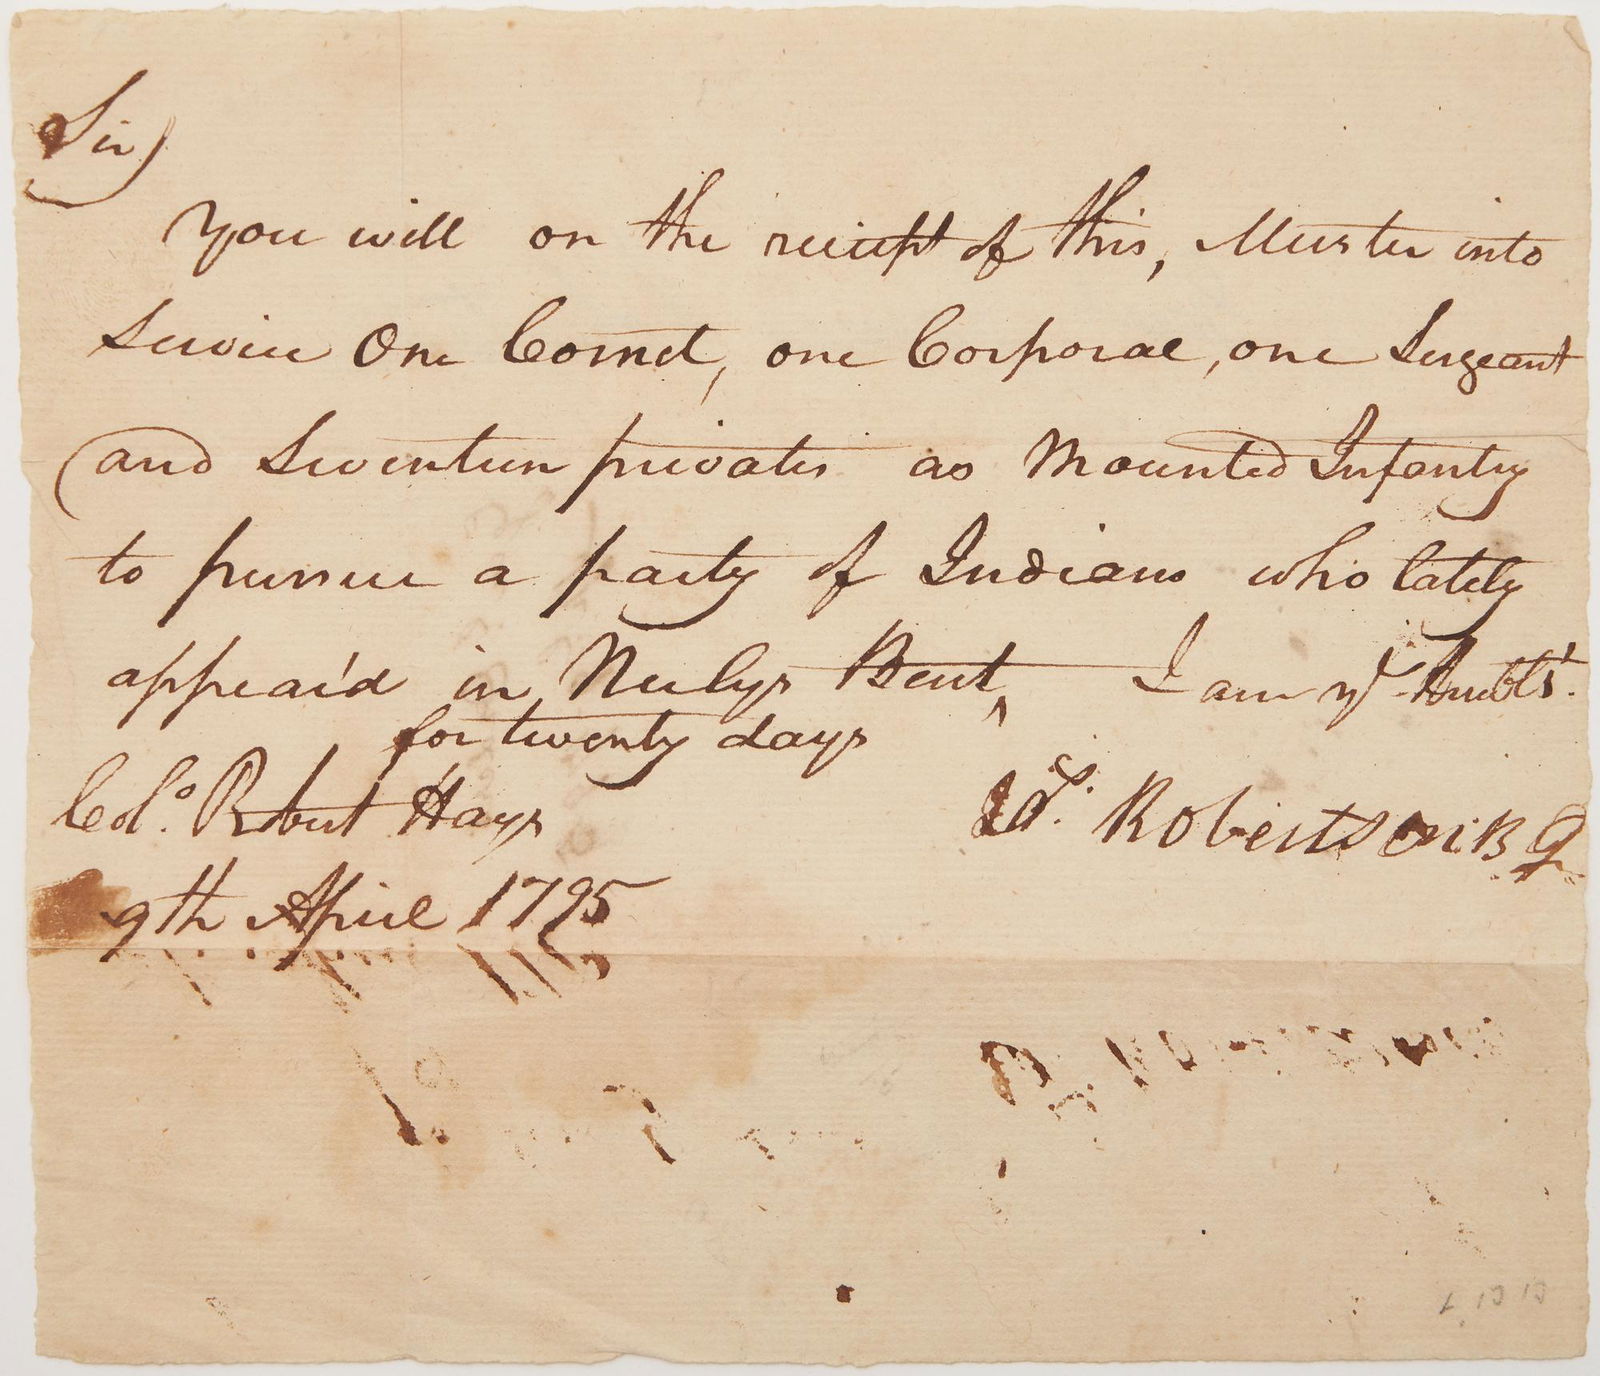 Sir
you will on the reciept of this, Muster into
Service One Cornet, one Corporal, one Sergeant
and Seventeen privates as Mounted Infantry
to pursue a party of Indians who lately
appear'd in Neelys Bent, I am yr Humble St.
^
for twenty days
Colo. Robert Hays
Jas. Robertson B G
9th April 1795